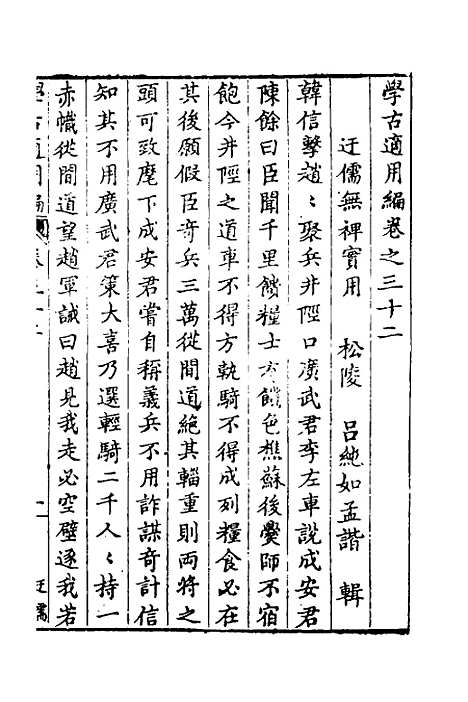 學古適用編卷之三十二
迂儒無裨實用 松陵 呂純如孟諧 輯
韓信擊趙〻聚兵井陘口廣武君李左車說成安君
陳餘曰臣聞千里餽糧士有饑色樵蘇後爨師不宿
飽今井陘之道車不得方軌騎不得成列糧食必在
其後願假臣奇兵三萬從間道絶其輜重則両將之
頭可致麾下成安君嘗自稱義兵不用詐謀奇計信
知其不用廣武君策大喜乃選輕騎二千人〻持一
赤幟從間道望趙軍誡曰趙見我走必空壁逐我若
學古適用編 卷之三十二 一 迂儒